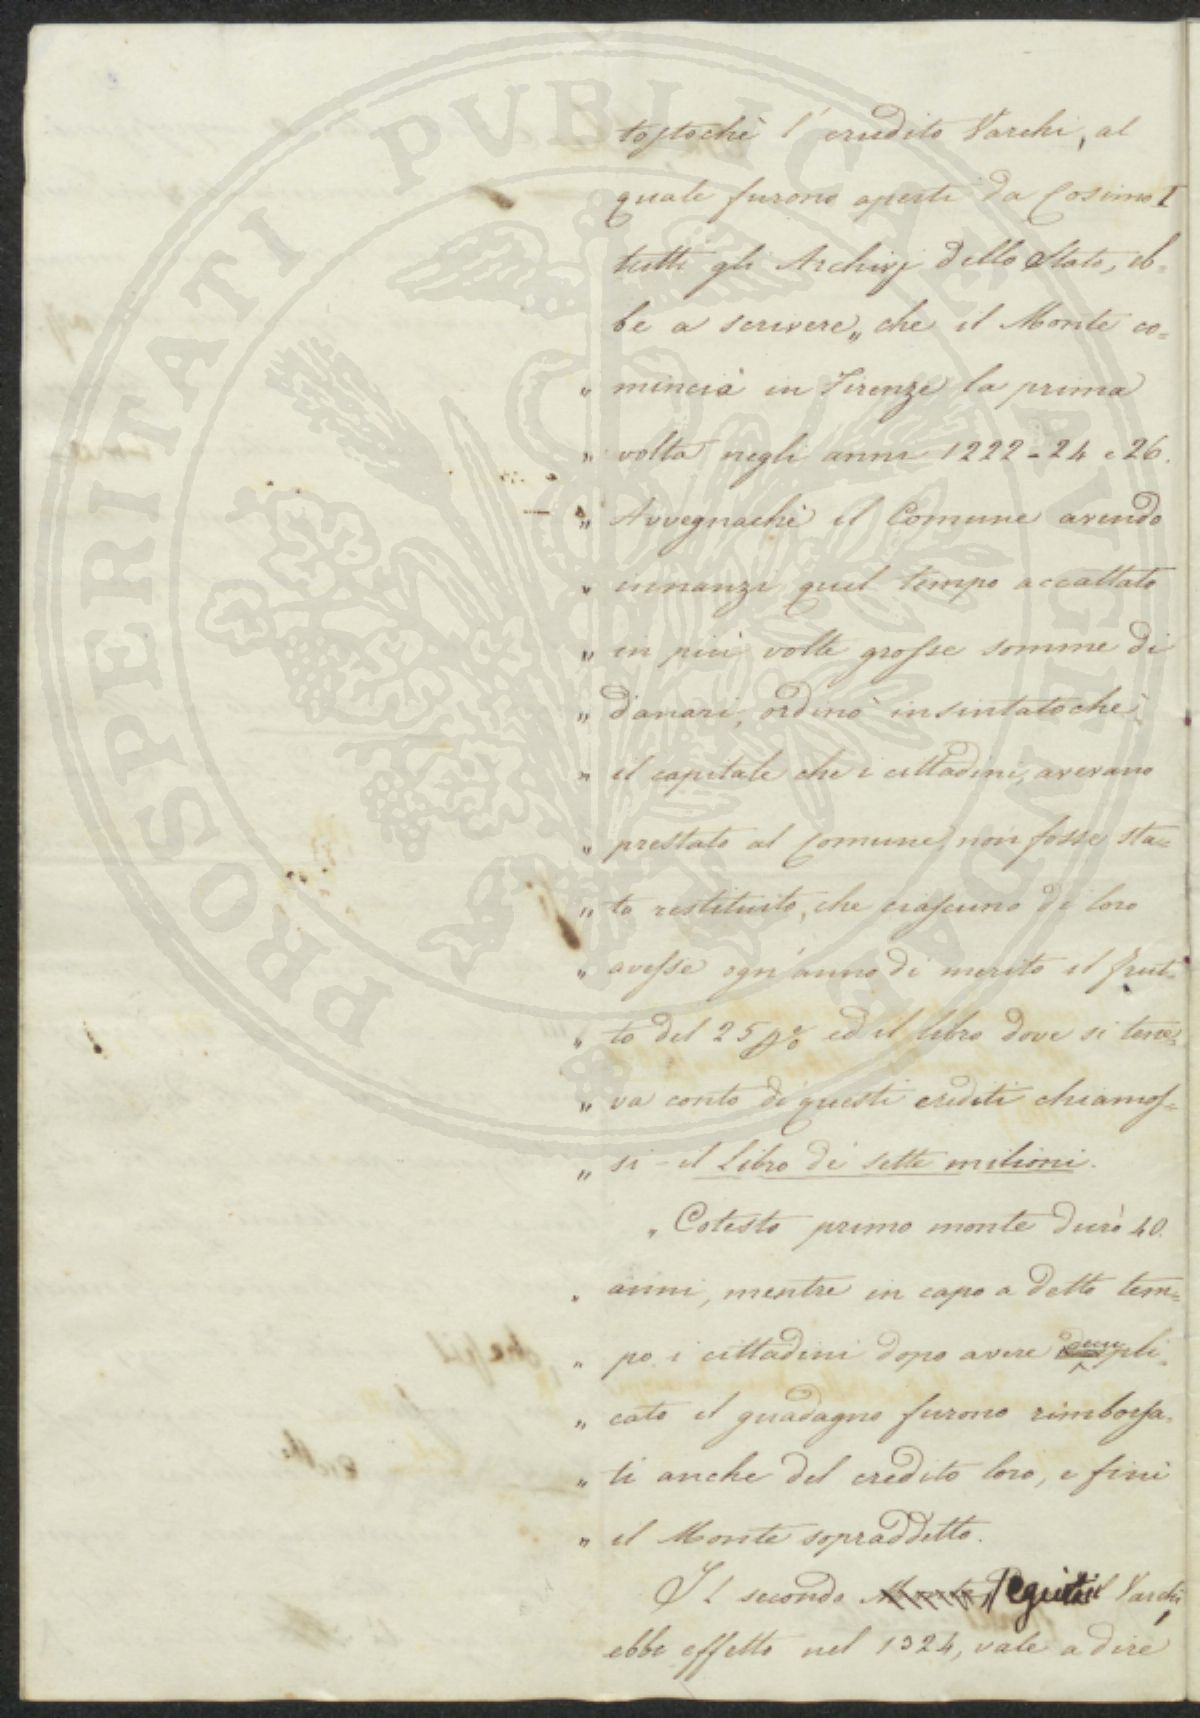 tostochè l'erudito Varchi, al
quale furono aperti da Cosimo I
tutti gli Archivj dello Stato, eb=
be a scrivere „ che il Monte co=
„ minciò in Firenze la prima
„ volta negli anni 1222 - 24 e 26.
„ Avvegnachè il Comune avendo
„ innanzi quel tempo accattato
„ in più volte grosse somme di
„ danari, ordinò insintatochè
„ il capitale che i cittadini, avevano
„ prestato al Comune, non fosse sta=
„ to restituito, che ciascuno di loro
„ avesse ogn'anno di merito il frut=
„ to del 25 p% ed il libro dove si tene=
„ va conto di questi crediti chiamos=
„ si - il Libro di sette milioni.
„ Cotesto primo monte durò 40
„ anni, mentre in capo a detto tem=
„ po i cittadini dopo avere decupli=
„ cato il guadagno furono rimborsa=
„ ti anche del credito loro, e finì
„ il Monte sopraddetto.
Il secondo Monte, seguita il Varchi,
ebbe effetto nel 1324, vale a dire
PROSPERITATI PVBLICAE AVGENDAE